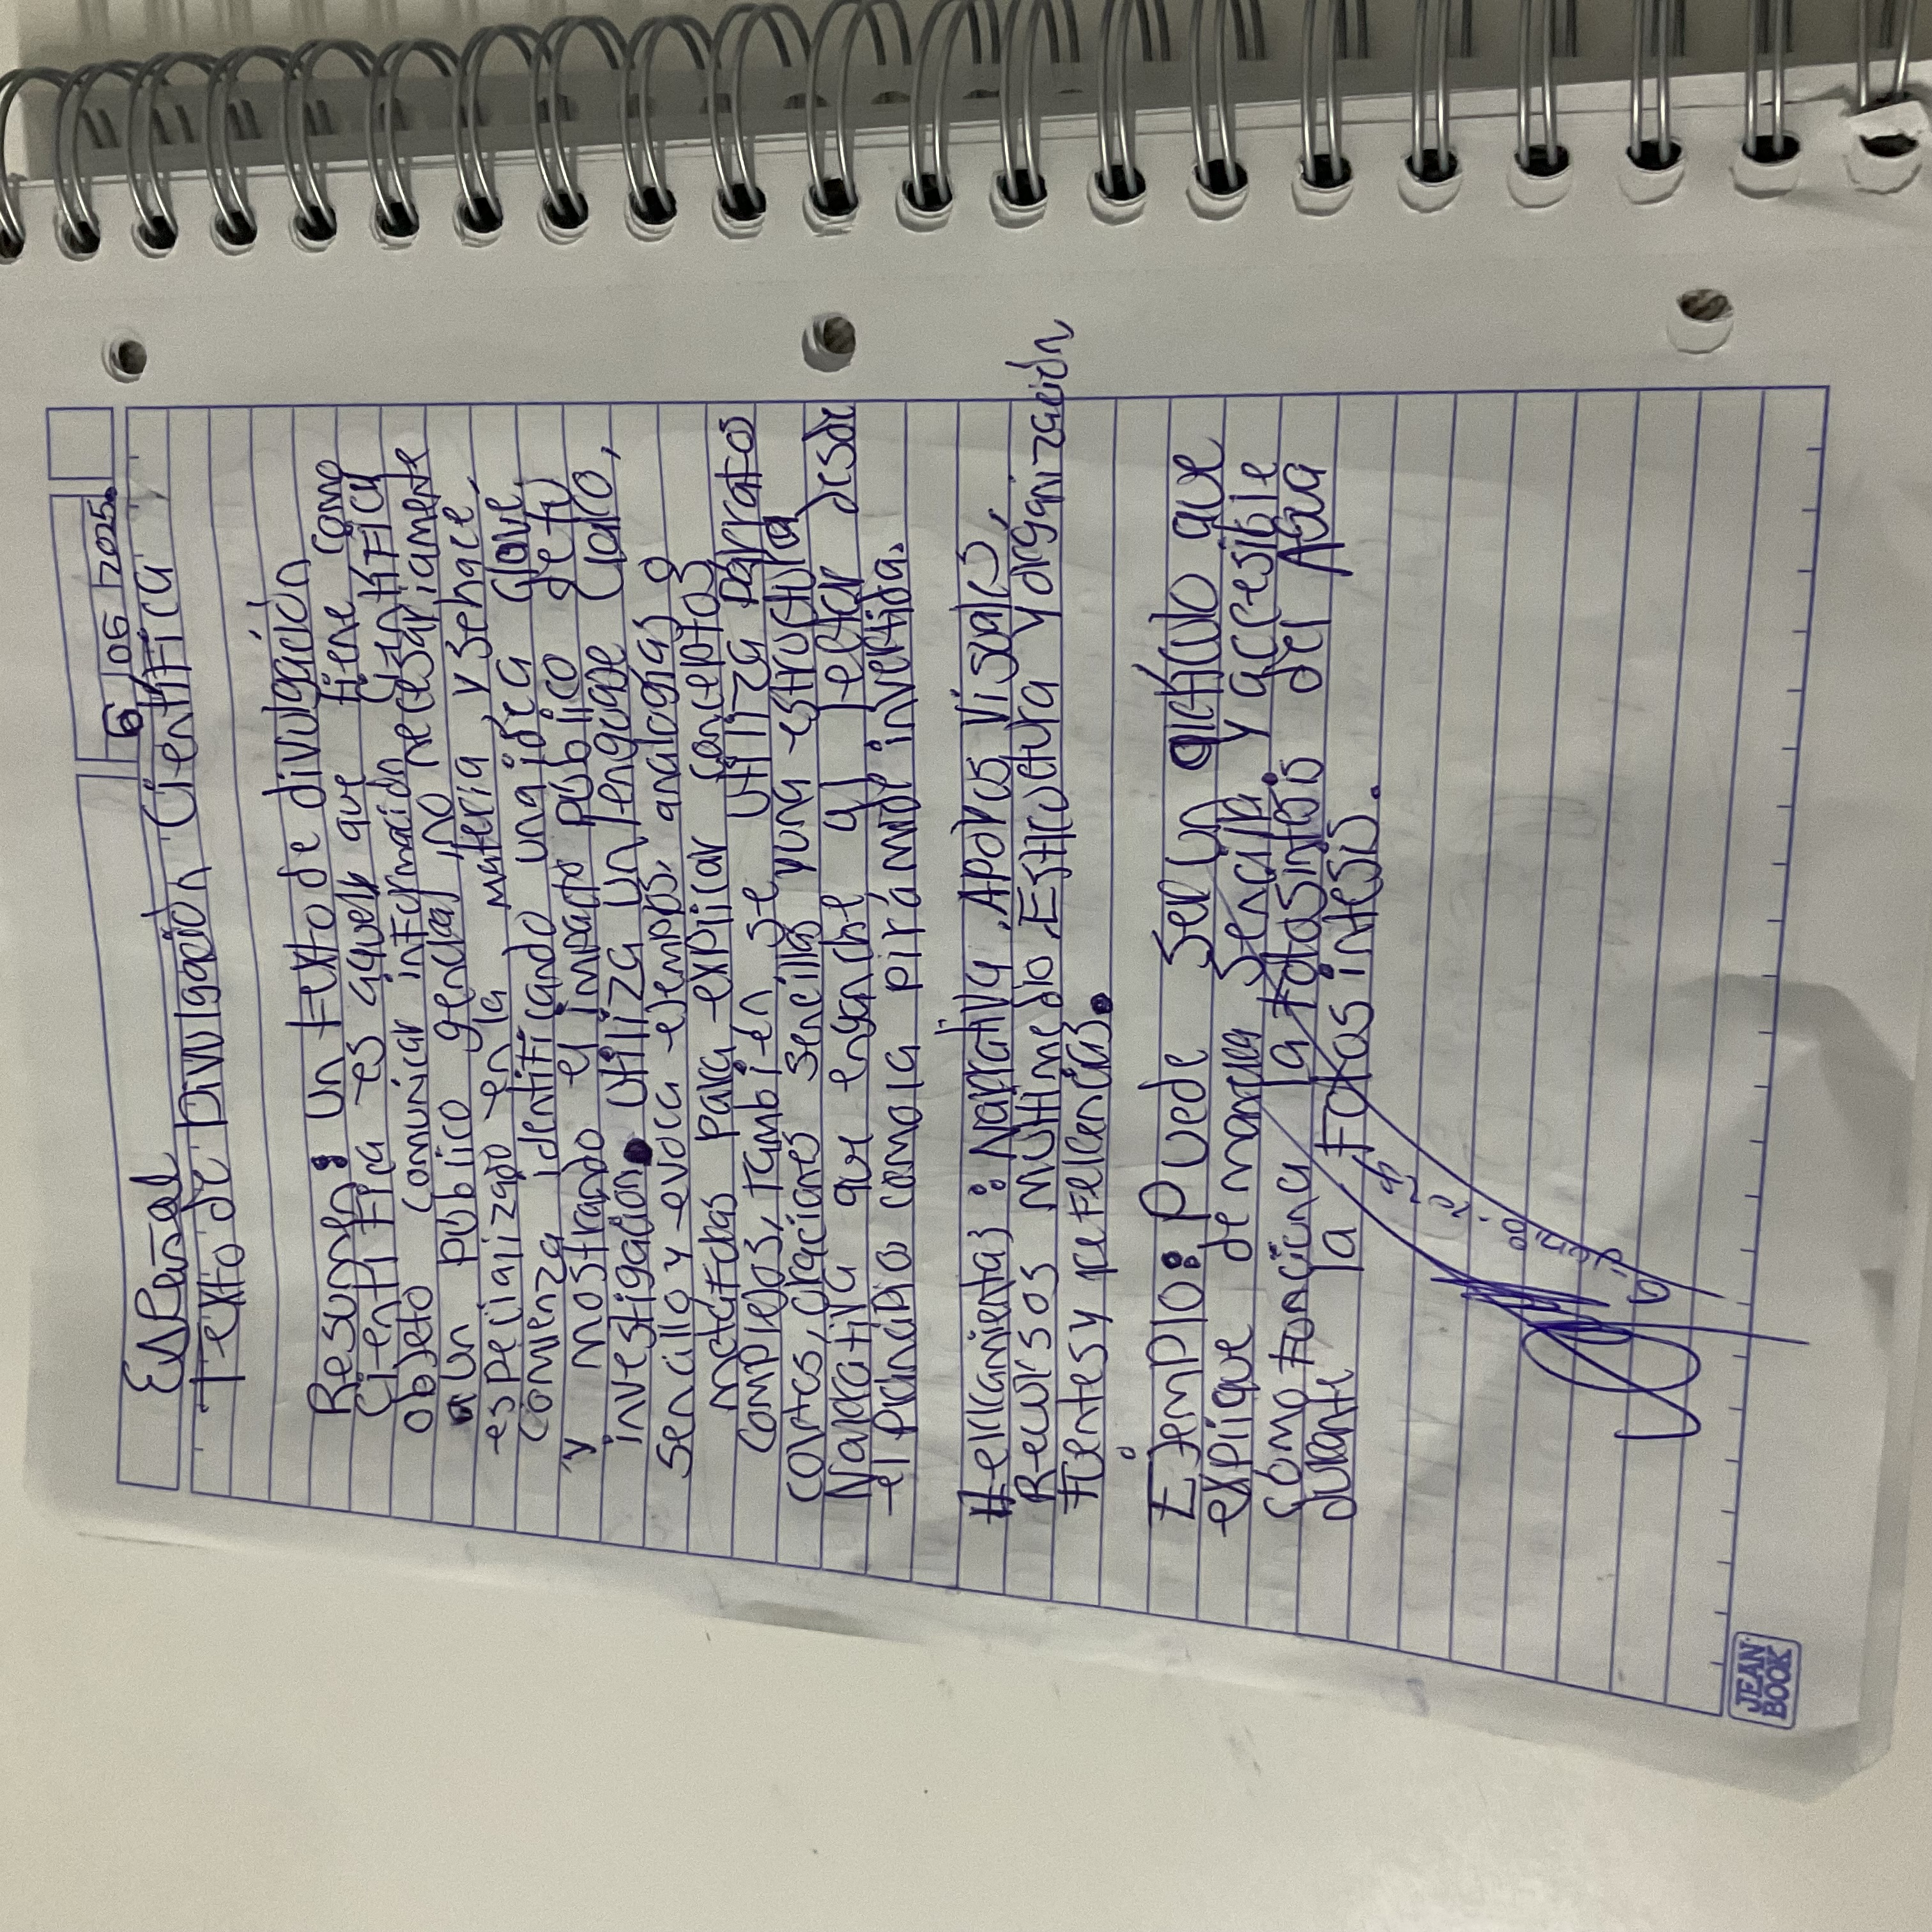 Español
6 06 2025.
Texto de Divulgación Científica
Resumen: Un texto de divulgación
Científica es aquel que tiene como
objeto comunicar información científica
a un público general, no necesariamente
especializado en la materia, y se hace,
comienza identificando una idea clave,
y mostrando el impacto público de tu
investigación. Utiliza un lenguaje claro,
sencillo y evoca ejemplos, analogías o
metáforas para explicar conceptos
complejos, también se utiliza párrafos
cortos, oraciones sencillas y una estructura
Narrativa que enganche al lector desde
el principio como la pirámide invertida.
Herramientas: Narrativa, Apoyos Visuales,
Recursos multimedio, Estructura y organización,
fuentes y referencias.
Ejemplo: Puede ser un artículo que
explique de manera sencilla y accesible
como funciona la fotosíntesis del Agua
durante la Fotosintesis.
JEAN
BOOK